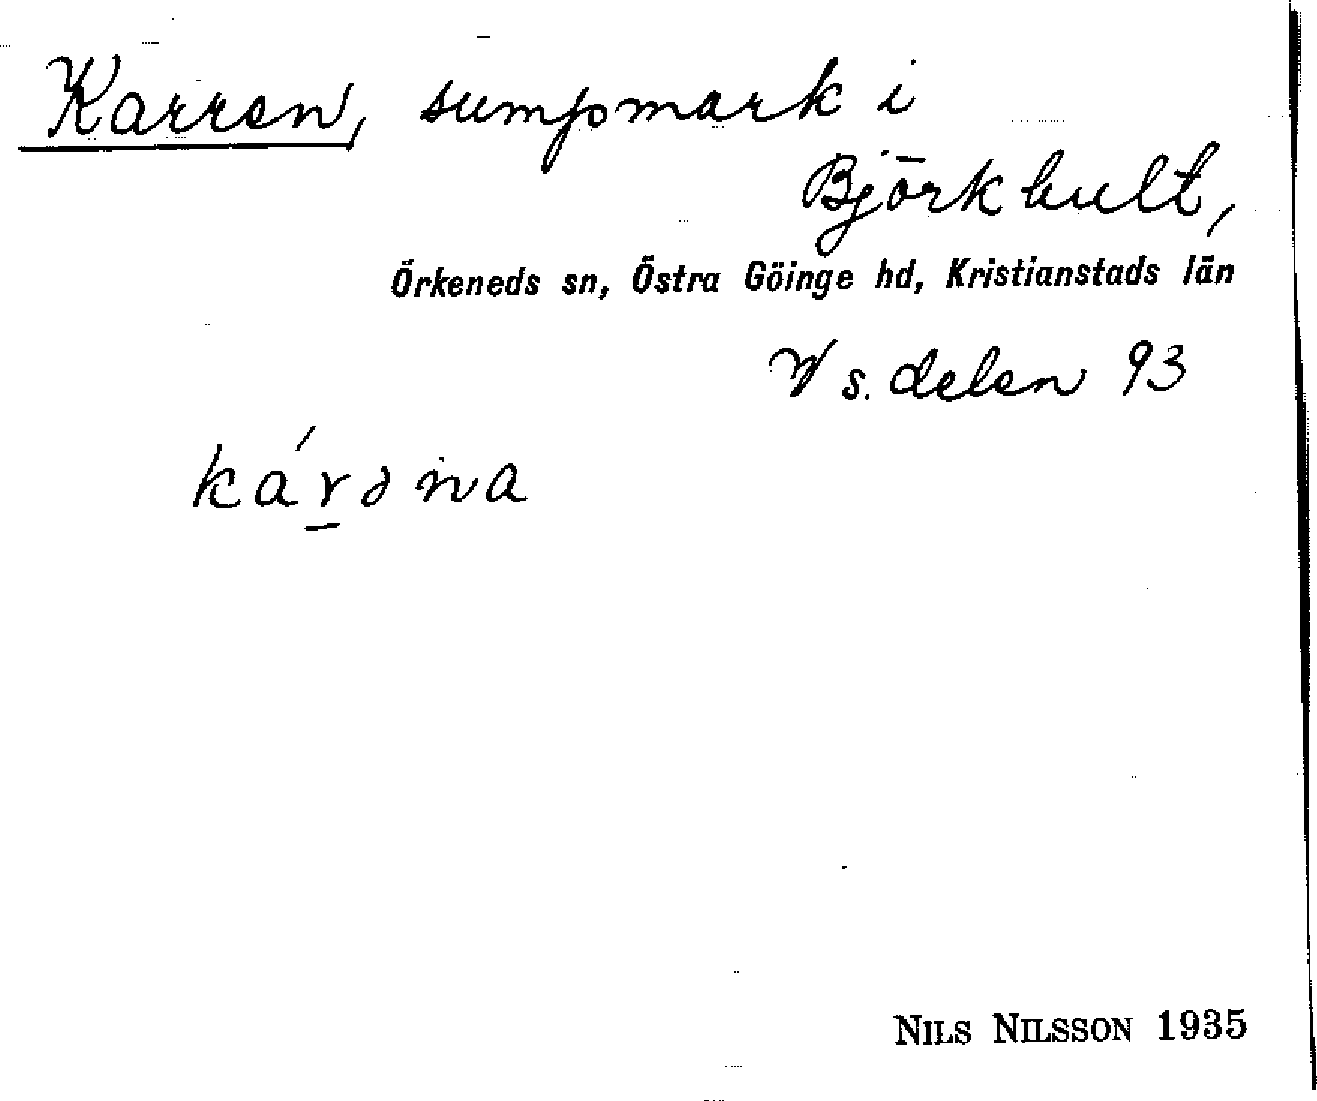 Karren, sumpmark i
Björkhult,
Örkeneds sn, Östra Göinge hd, Kristianstads län
V s. delen 93
ká̱rəna
NILS NILSSON 1935